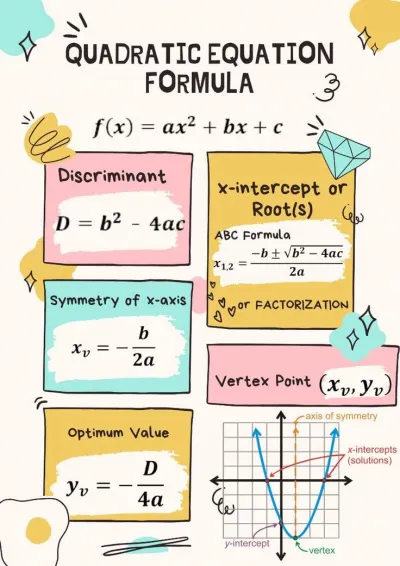 QUADRATIC EQUATION
FORMULA
f(x) = ax² + bx + c
Discriminant
D = b² - 4ac
x-intercept or
Root(s)
ABC Formula
x₁,₂ = (−b ± √(b² − 4ac)) / 2a
or FACTORIZATION
Symmetry of x-axis
xᵥ = − b / 2a
Vertex Point (xᵥ, yᵥ)
Optimum Value
yᵥ = − D / 4a
axis of symmetry
x-intercepts
(solutions)
y-intercept
vertex